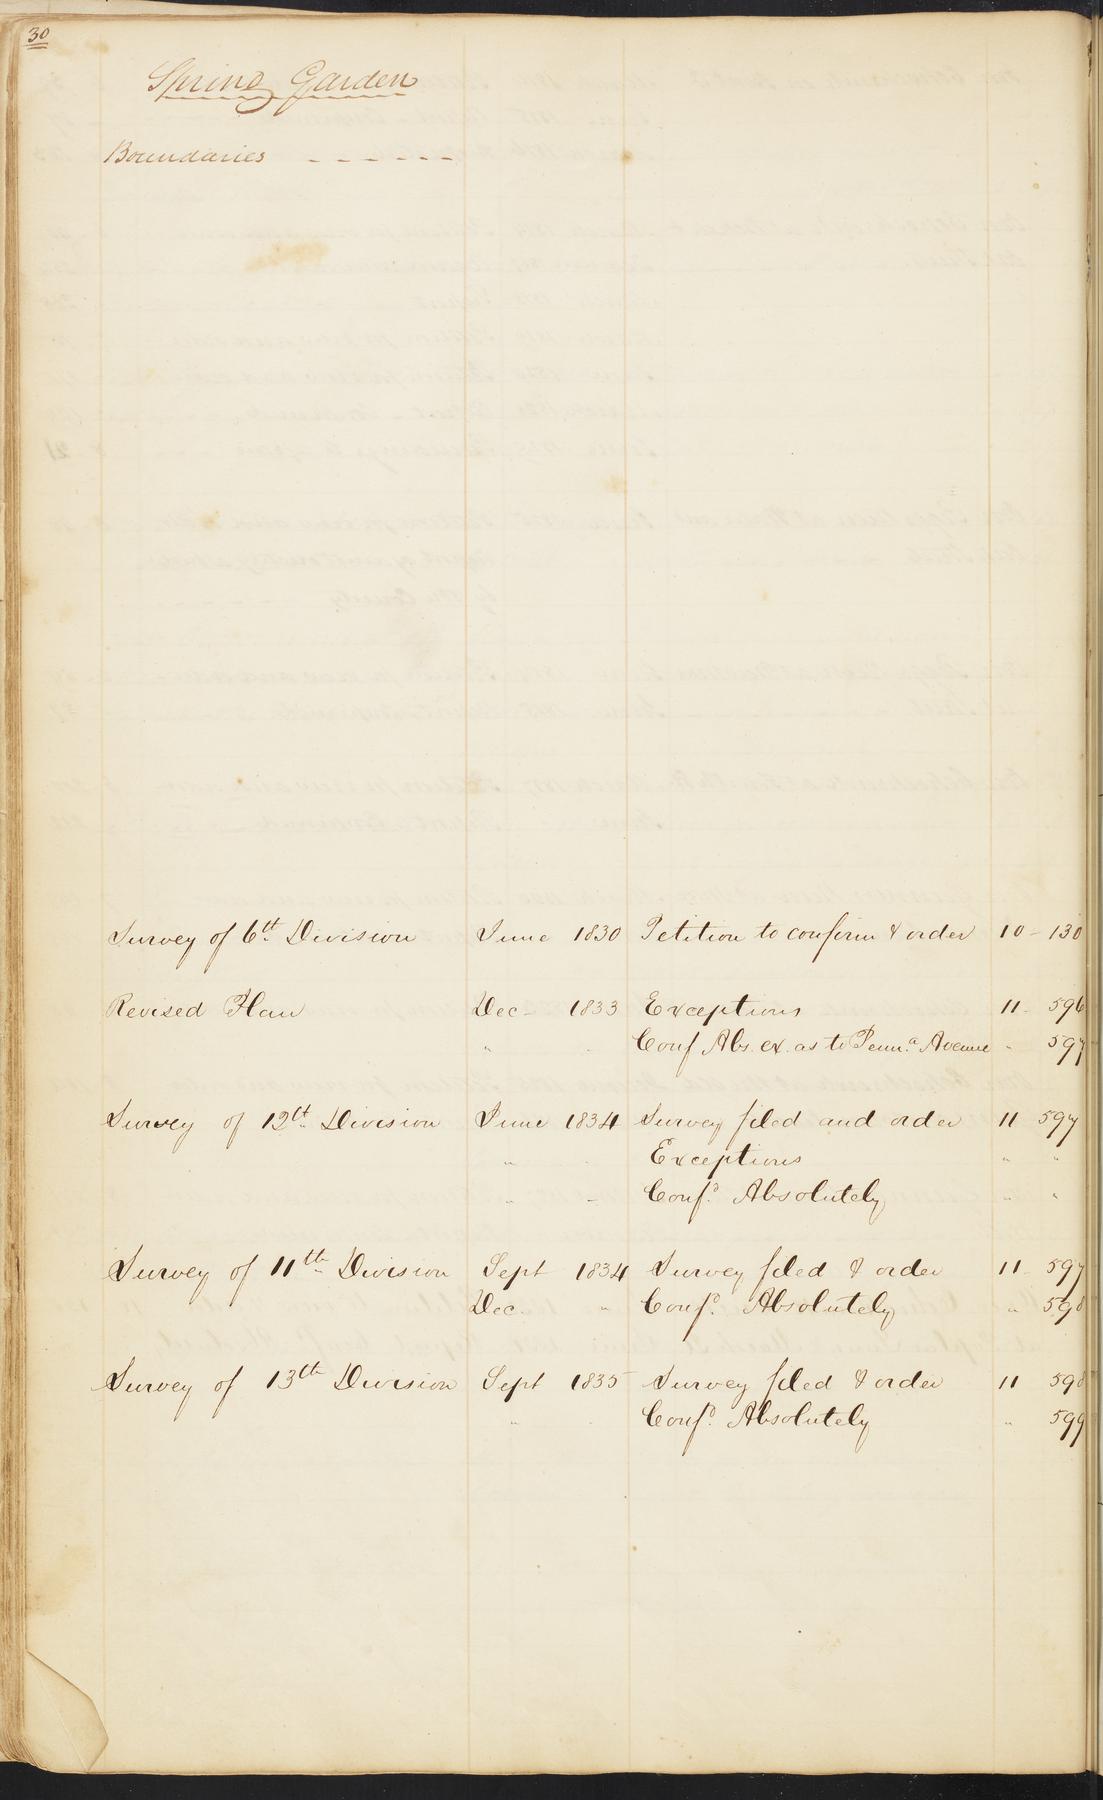 30
Spring Garden
Boundaries - - - - - -
Survey of 6th Division June 1830 Petition to confirm & order 10 - 130
Revised Plan Dec - 1833 Exceptions 11 - 596
" " Conf Abs. ex. as to Penn.a Avenue " 597
Survey of 12th Division June 1834 Survey filed and order 11 597
" " Exceptions " "
" " Conf.d Absolutely " "
Survey of 11th Division Sept 1834 Survey filed & order 11 - 597
Dec. " Conf.d Absolutely " 598
Survey of 13th Division Sept 1835 Survey filed & order 11 598
" " Conf.d Absolutely " 599